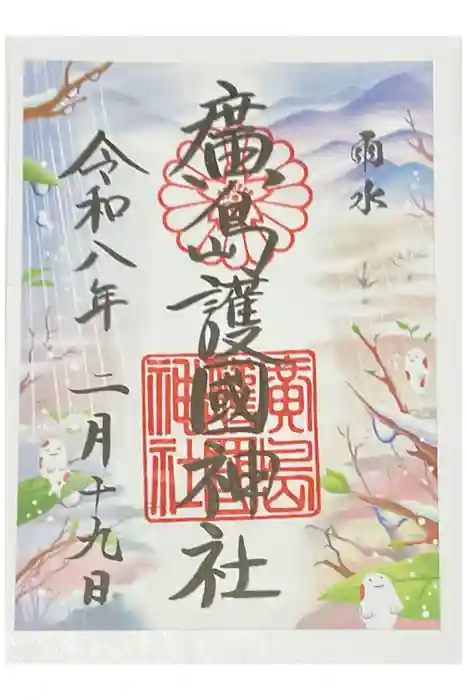 雨水
廣島護國神社
廣島護國神社
令和八年 二月十九日